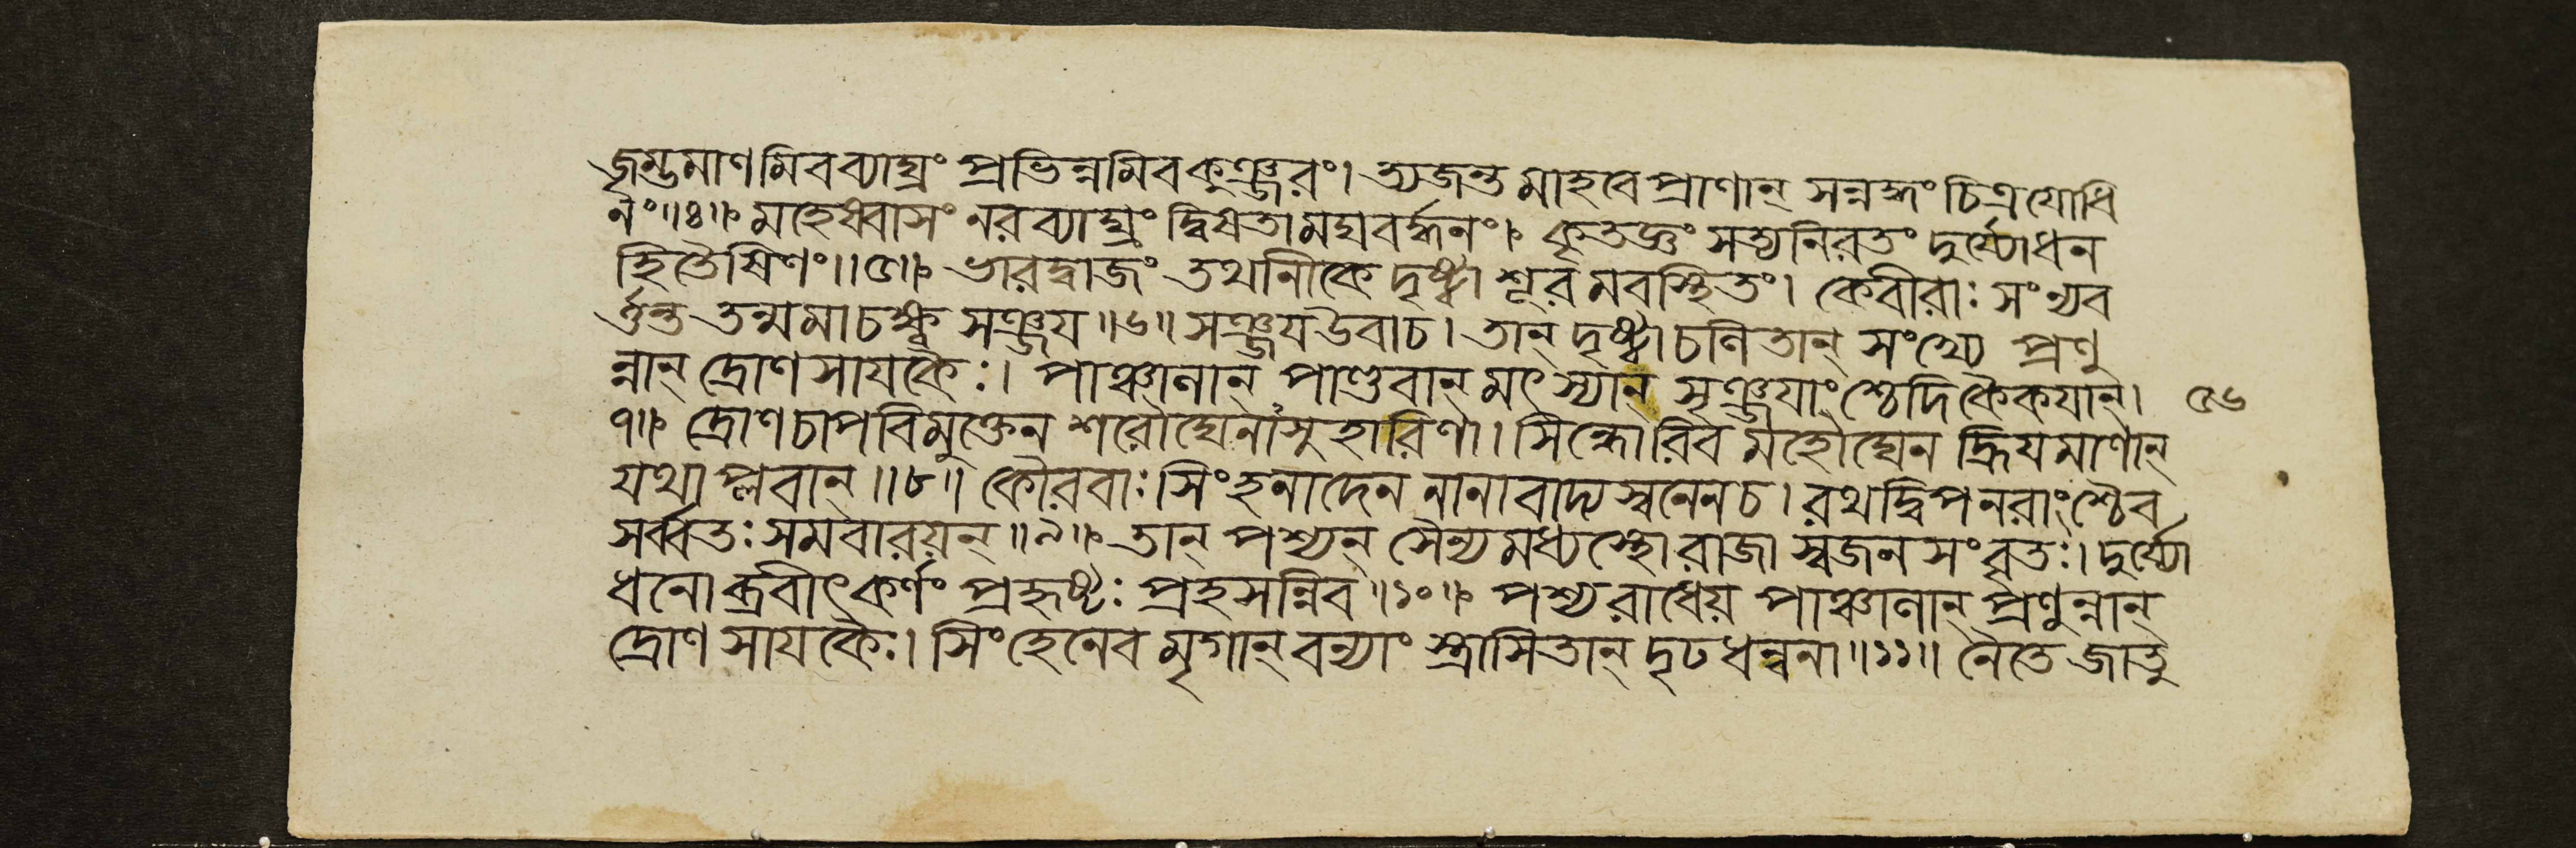 জৃম্ভমাণমিবব্যাঘ্রং প্রভিন্নমিবকুঞ্জরং। ত্যজন্তমাহবেপ্রাণান্ সন্নদ্ধং চিত্রযোধি
নং॥৪॥ মহেষ্বাসং নরব্যাঘ্রং দ্বিষতামঘবর্দ্ধনং। কৃতজ্ঞং সত্যনিরতং দুর্য্যোধন
হিতৈষিণং॥৫॥ ভারদ্বাজং তথানীকে দৃষ্ট্বা শূরমবস্থিতং। কেবীরাঃ সংন্যব
র্ত্তন্ত তন্মমাচক্ষ্ব সঞ্জয॥৬॥ সঞ্জযউবাচ। তান্ দৃষ্ট্বাচলিতান্ সংখ্যে প্রণু
ন্নান্ দ্রোণসাযকৈঃ। পাঞ্চালান্ পাণ্ডবান্ মৎস্যান্ সৃঞ্জযাংশ্চেদিকৈকযান্। ৫৬
৭॥ দ্রোণচাপবিমুক্তেন শরৌঘেনাসুহারিণা। সিন্ধোরিব মহৌঘেন হ্রিযমাণান্
যথাপ্লবান্॥৮॥ কৌরবাঃ সিংহনাদেন নানাবাদ্যস্বনেনচ। রথদ্বিপনরাংশ্চৈব
সর্ব্বতঃ সমবারয়ন্॥৯॥ তান্ পশ্যন্ সৈন্যমধ্যস্থোরাজা স্বজনসংবৃতঃ। দুর্য্যো
ধনোব্রবীৎকর্ণং প্রহৃষ্টঃ প্রহসন্নিব॥১০॥ পশ্যরাধেয় পাঞ্চালান্ প্রণুন্নান্
দ্রোণসাযকৈঃ। সিংহেনেব মৃগান্ বন্যাং স্ত্রাসিতান্ দৃঢধন্বনা॥১১॥ নৈতে জাতু